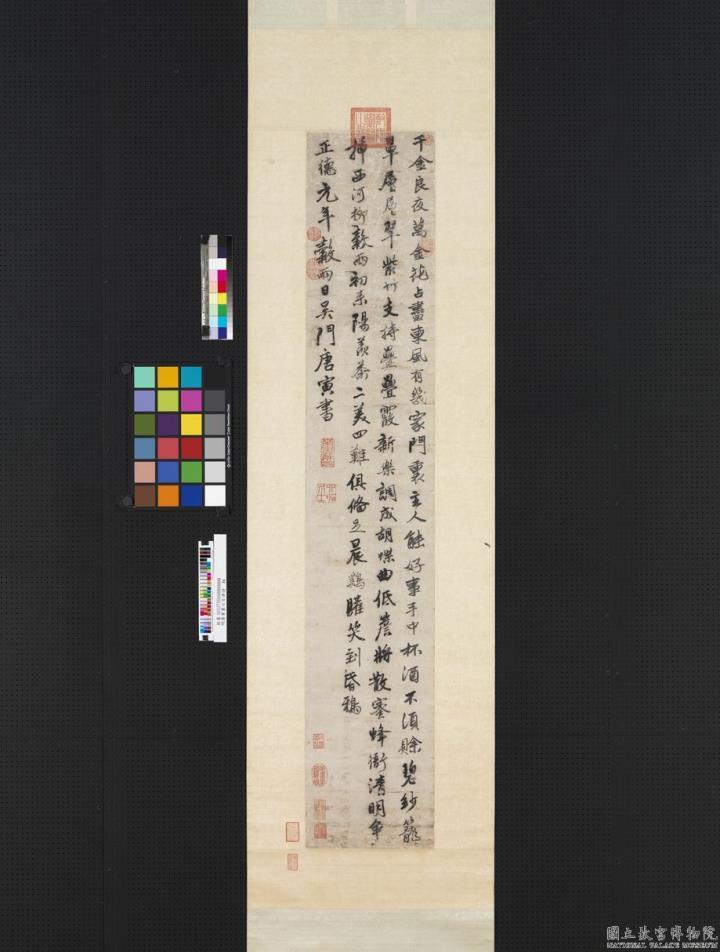 千金良夜萬金花占盡東風有幾家門裏主人能好事手中杯酒不須賒碧紗籠
罩層層翠紫竹支持疊疊霞新樂調成胡蝶曲低簷將散蜜蜂衙清明爭
插西河柳穀雨初來陽羨茶二美四難俱備足晨鷄矐笑到昏鴉
正德元年穀雨日吳門唐寅書
國立故宮博物院
NATIONAL PALACE MUSEUM